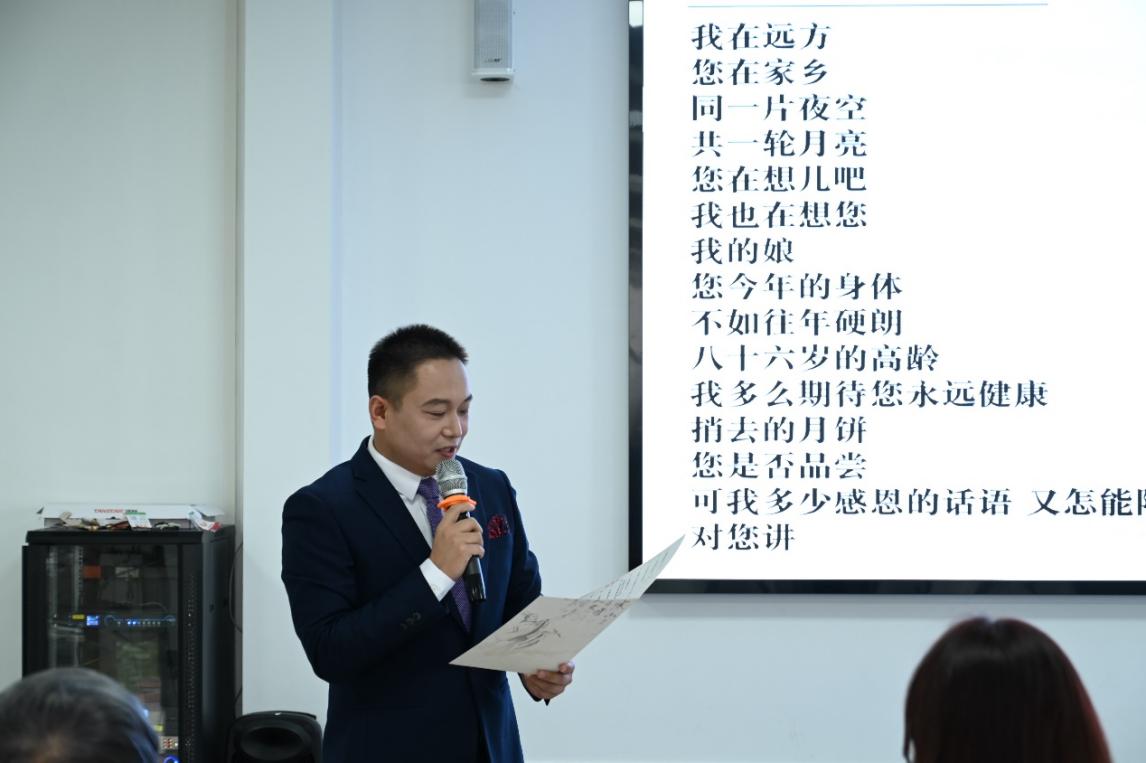 我在远方
您在家乡
同一片夜空
共一轮月亮
您在想儿吧
我也在想您
我的娘
您今年的身体
不如往年硬朗
八十六岁的高龄
我多么期待您永远健康
捎去的月饼
您是否品尝
可我多少感恩的话语 又怎能
对您讲